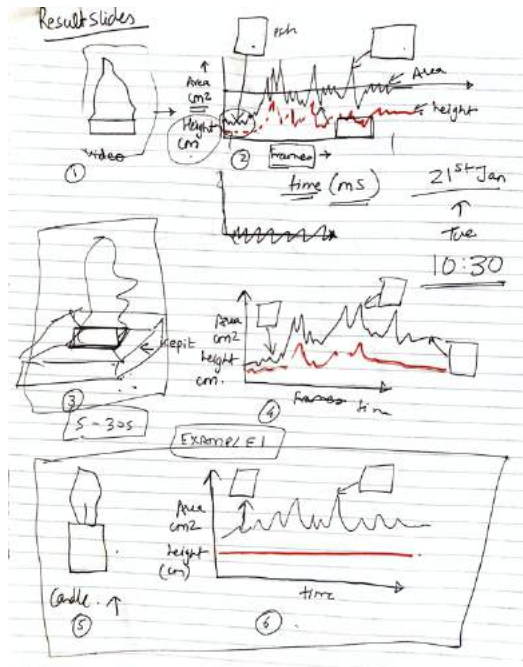 Result slides
Area
cm2
Height
cm
Area
height
video
①
②
frames →
time (ms)
21st Jan
Tue
10:30
③
5-30s
Area
cm2
height
cm.
frames time
④
EXAMPLE 1
Area
cm2
height
(cm)
time
Candle.
⑤
⑥